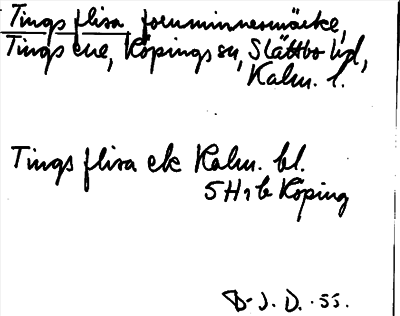 Tings flisa fornminnesmärke,
Tings ene, Köpings sn, Slättbo hd,
Kalm. l.
Tings flisa ek Kalm. bl.
5H1b Köping
D. J. D. -55.